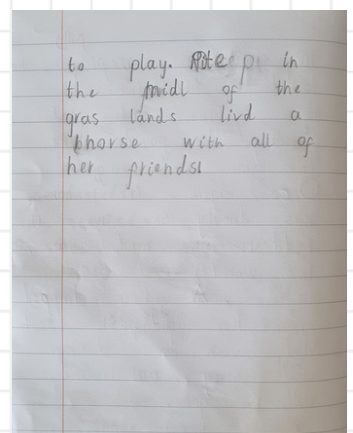 to play. in
the midl of the
gras lands livd a
horse with all of
her friends